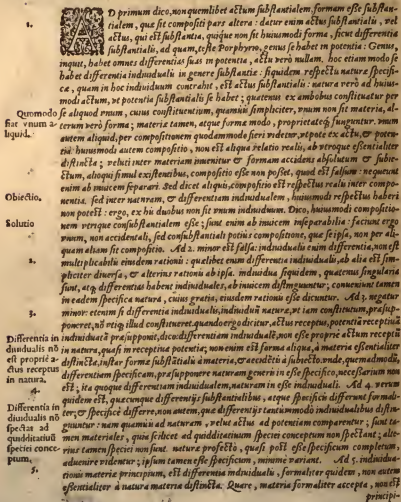 1.
AD primum dico, non quemlibet actum substantialem, formam esse substan-
tialem, quæ sit compositi pars altera: datur enim actus substantialis, vel
actus, qui est substantia, quique non sit huiusmodi forma, sicut differentia
substantialis, ad quam, teste Porphyrio, genus se habet in potentia: Genus,
inquit, habet omnes differentias suas in potentia, actu verò nullam. hoc etiam modo se
habet differentia indiuidualis in genere substantiæ: siquidem respectu naturæ specifi-
cæ, quam in hoc indiuiduum contrahit, est actus substantialis: natura verò ad huius-
modi actum, vt potentia substantialis se habet; quatenus ex ambobus constituitur per
Quomodo
fiat vnum a-
liquid.
se aliquod vnum, cuius constituentium, quamuis simpliciter, vnum non sit materia, al-
terum verò forma; materiæ tamen, atque formæ modo, proprietateq́; funguntur. vnum
autem aliquid, per compositionem quodammodo fieri videtur, vt pote ex actu, & poten-
tia: huiusmodi autem compositio, non est aliqua relatio realis, ab vtroque essentialiter
distincta; veluti inter materiam inuenitur & formam accidens absolutum & subie-
ctum, alioqui simul existentibus, compositio esse non posset, quod est falsum: nequeunt
Obiectio.
enim ab inuicem separari. Sed dices aliquis, compositio est respectus realis inter compo-
nentia, sed inter naturam, & differentiam indiuidualem, huiusmodi respectus haberi
non potest: ergo, ex his duobus non fit vnum indiuiduum. Dico, huiusmodi compositio-
Solutio
nem verique consubstantialem esse; sunt enim ab inuicem inseparabilia: faciunt ergo
vnum, non accidentali, sed consubstantiali potius compositione, quæ se ipsa, non per ali-
2.
quam aliam fit compositio. Ad 2. minor est falsa: indiuidualis enim differentia, non est
multiplicabilis eiusdem rationis: quælibet enim differentia indiuidualis, ab alia est sim-
pliciter diuersa, & alterius rationis ab ipsa. indiuidua siquidem, quatenus singularia
sunt, atq; differentias habent indiuiduales, ab inuicem distinguuntur; conueniunt tamen
3.
in eadem specifica natura, cuius gratia, eiusdem rationis esse dicuntur. Ad 3. negatur
minor: etenim si differentia indiuidualis, indiuiduũ naturæ, vt iam constitutum, præsup-
poneret, nõ vtiq; illud constitueret. quando ergo dicitur, actus receptus, potentiã receptiuã
Differentia in
diuidualis nõ
est propriè a-
ctus receptus
in natura.
indiuiduatã præsupponit, dico: differentiam indiuidualē, non esse propriè actum receptũ
in natura, quasi in receptiua potentia; non enim est forma aliqua, à materia essentialiter
distincta, instar formæ substātialis à materia, & accidētis à subiecto. vnde, quemadmodũ,
differentiam specificam, præsupponere naturam generis in esse specifico, necessarium non
4.
est; ita quoque differentiam indiuidualem, naturam in esse indiuiduali. Ad 4. verum
quidem est, quæcunque differentijs substantialibus, atque specificis differunt formali-
Differentia in
diuidualis nõ
spectat ad
quidditatiuũ
speciei conce-
ptum.
ter, & specificè differre, non autem, quæ differentijs tantummodo indiuidualibus distin-
guuntur: nam quamuis ad naturam, velut actus ad potentiam comparentur; sunt ta-
men materiales, quia scilicet ad quidditatiuum speciei conceptum non spectant; alte-
rius tamen speciei non sunt. naturæ profectò, quasi post esse specificum completum,
5.
aduenire videntur; ipsum tamen esse specificum, minimè variant. Ad 5. indiuidua-
tionis materia principium, est differentia indiuidualis, formaliter quidem, non autem
essentialiter à natura materiæ distincta. Quare, materia formaliter accepta, non est
principiu